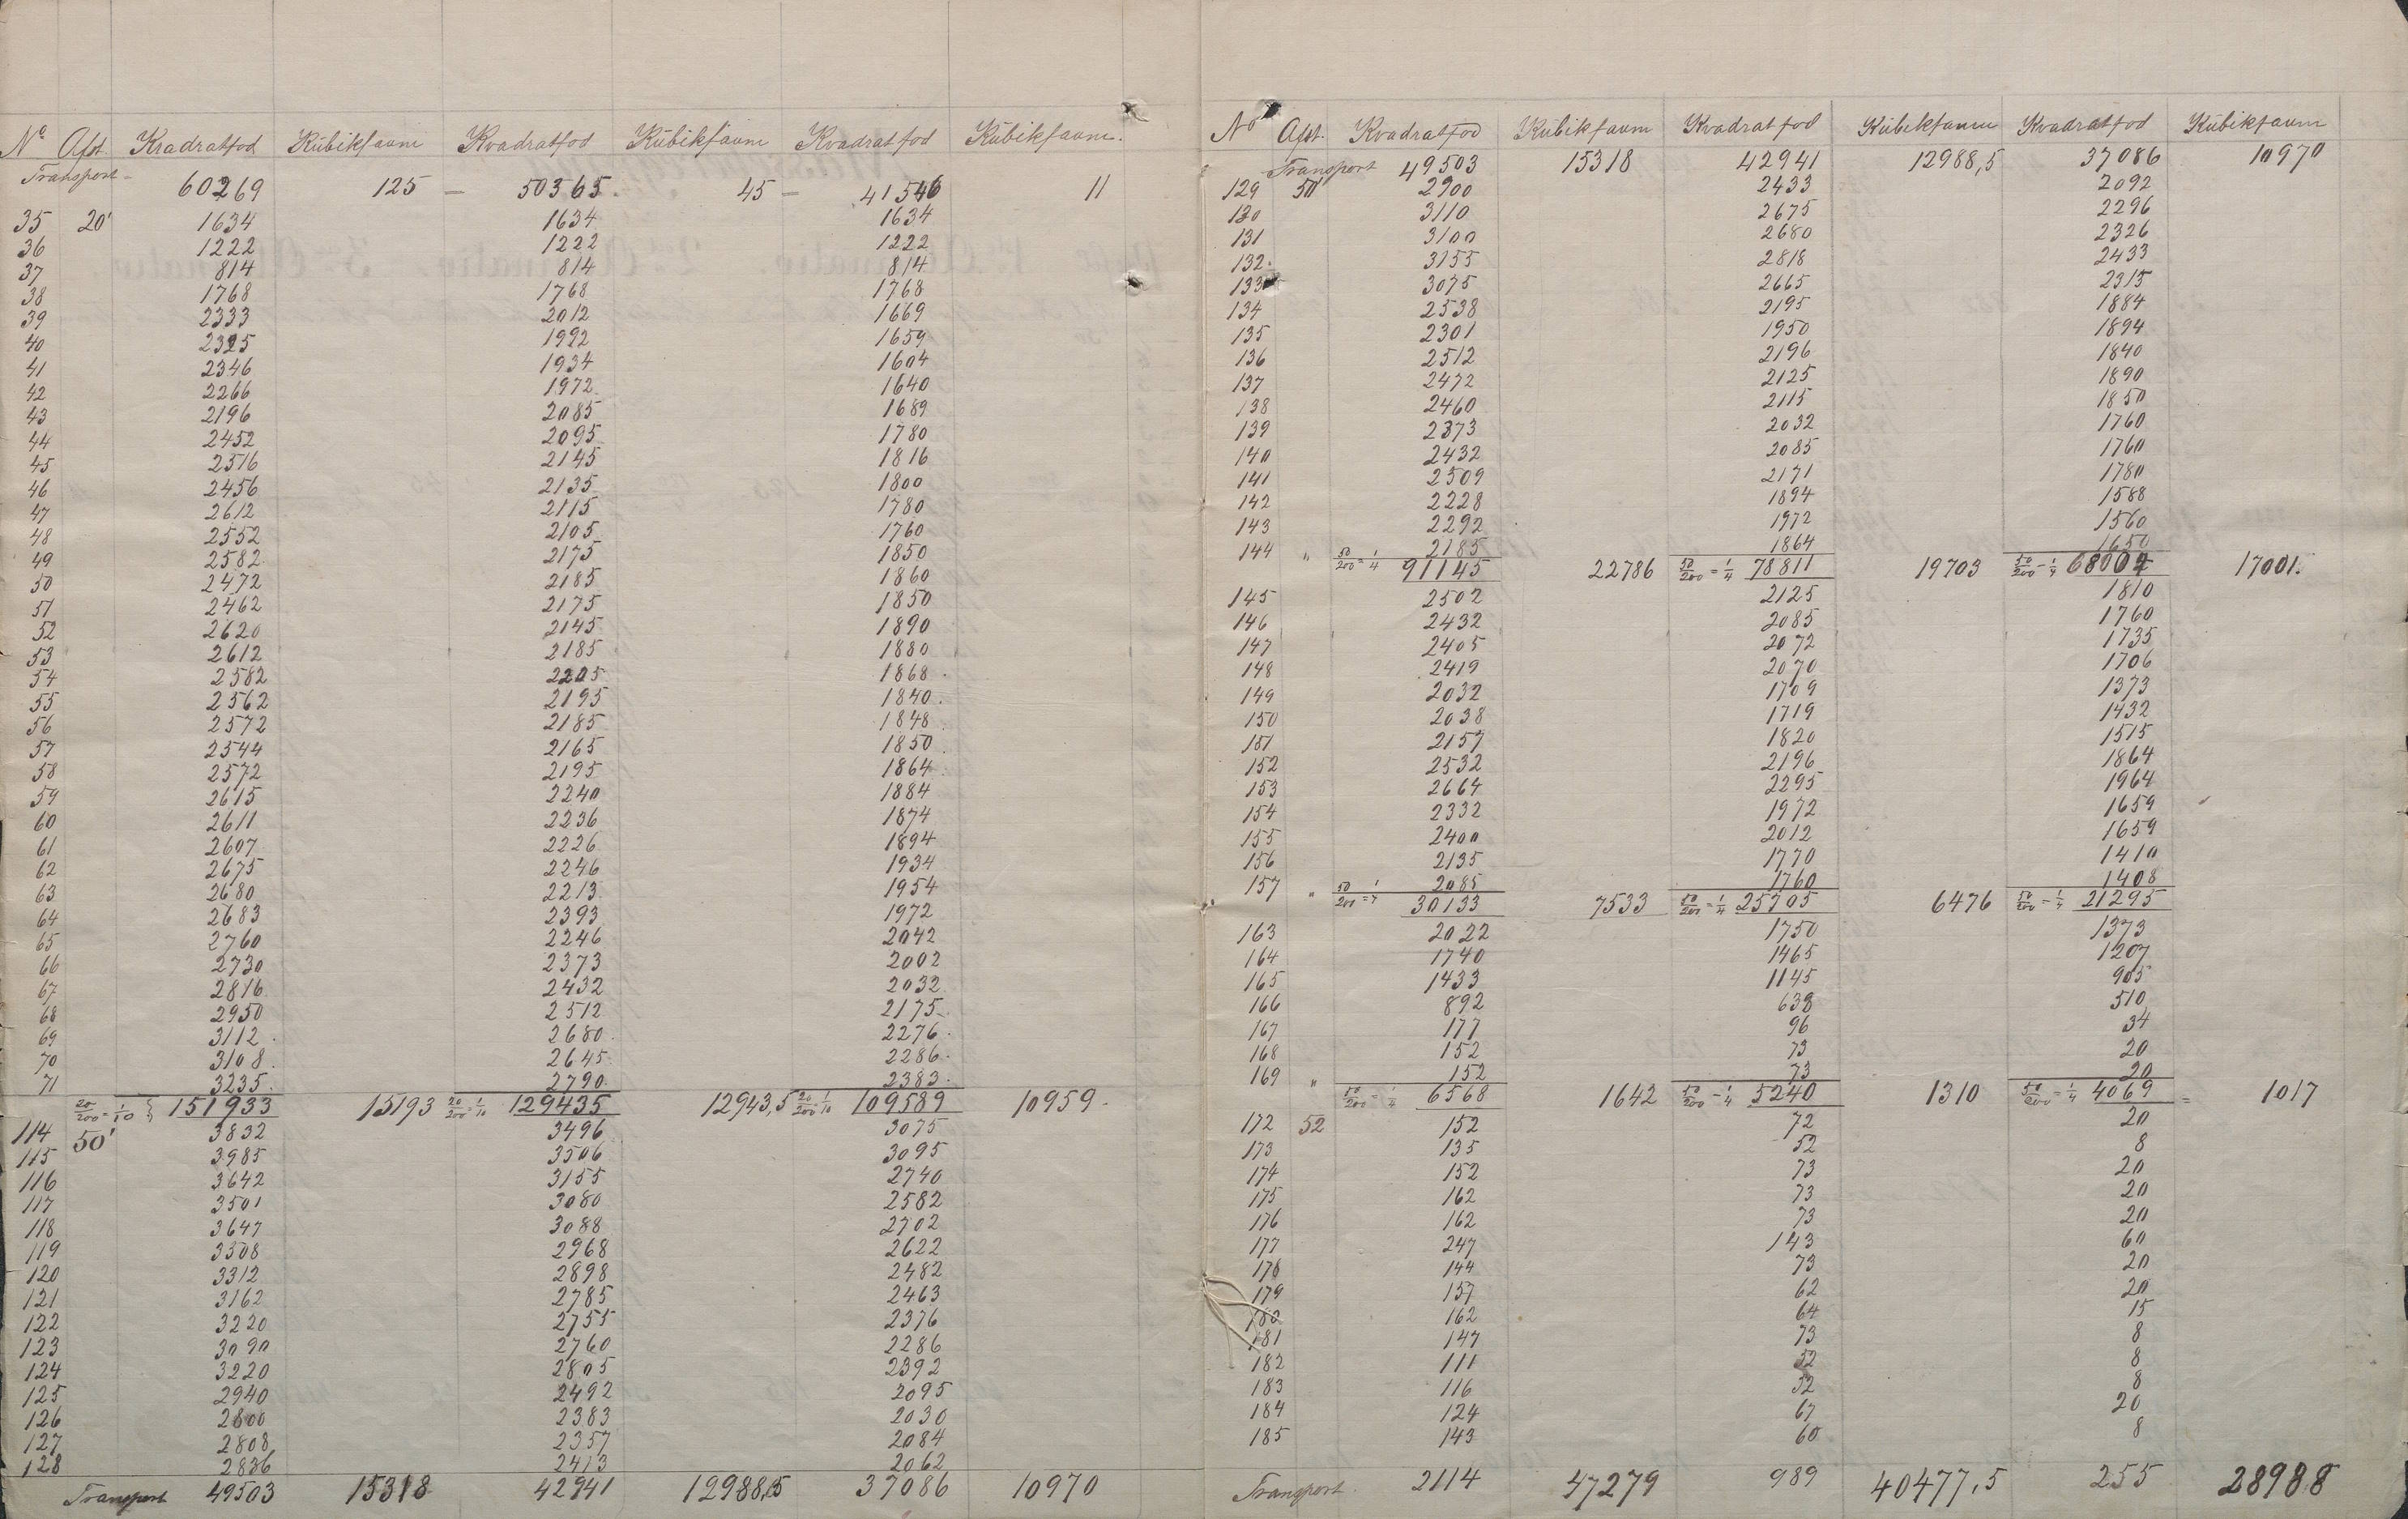 No Afst. Kvadratfod Kubikfavn Kvadratfod Kubikfavn Kvadratfod Kubikfavn.
Transport- 60269 125 - 50365. 45 - 41546 11
35 20' 1634 1634 1634
36 1222 1222 1222
37 814 814 814
38 1768 1768 1768
39 2333 2012 1669
40 2325 1992 1659
41 2346 1934 1604
42 2266 1972 1640
43 2196 2085 1689
44 2452 2095 1780
45 2516 2145 1816
46 2456 2135 1800
47 2612 2115 1780
48 2552 2105 1760
49 2582 2175 1850
50 2472 2185 1860
51 2462 2175 1850
52 2620 2145 1890
53 2612 2185 1880
54 2582 2205 1868.
55 2562 2195 1840.
56 2572 2185 1848.
57 2544 2165 1850.
58 2572 2195 1864.
59 2615 2240 1884
60 2611 2236 1874
61 2607 2226 1894
62 2675 2246 1934
63 2680 2213 1954
64 2683 2393 1972
65 2760 2246 2042
66 2730 2373 2002
67 2816 2432 2032
68 2950 2512 2175
69 3112. 2680. 2276.
70 3108. 2645. 2286.
71 3235. 2790. 2383.
20/200 = 1/10 } 151933 15193 20/200 = 1/10 129435 12943,5 20/200 = 1/10 109589 10959.
114 50' 3832 3496 3075
115 3985 3506 3095
116 3642 3155 2740
117 3501 3080 2582
118 3647 3088 2702
119 3308 2968 2622
120 3312 2898 2482
121 3162 2785 2463
122 3220 2755 2376
123 3090 2760 2286
124 3220 2805 2392
125 2940 2492 2095
126 2800 2383 2030
127 2808 2357 2084
128 2836 2413 2062
Transport 49503 15318 42941 12988,5 37086 10970
No Afst. Kvadratfod Kubikfavn Kvadratfod Kubikfavn Kvadratfod Kubikfavn
Transport 49503 15318 42941 12988,5 37086 10970
129 50' 2900 2433 2092
130 3110 2675 2296
131 3100 2680 2326
132. 3155 2818 2433
133 3075 2665 2315
134 2538 2195 1884
135 2301 1950 1894
136 2512 2196 1840
137 2472 2125 1890
138 2460 2115 1850
139 2373 2032 1760
140 2432 2085 1760
141 2509 2171 1780
142 2228 1894 1588
143 2292 1972 1560
144 " 2185 1864 1650
50/200 = 1/4 91145 22786 50/200 = 1/4 78811 19703 50/200 = 1/4 68004 17001.
145 2502 2125 1810
146 2432 2085 1760
147 2405 2072 1735
148 2419 2070 1706
149 2032 1709 1373
150 2038 1719 1432
151 2157 1820 1515
152 2532 2196 1864
153 2664 2295 1964
154 2332 1972 1659
155 2400 2012 1659
156 2135 1770 1410
157 " 2085 1760 1408
50/200 = 1/4 30133 7533 50/200 = 1/4 25705 6476 50/200 = 1/4 21295
163 2022 1750 1373
164 1740 1465 1207
165 1433 1145 905
166 892 638 510
167 177 96 34
168 152 73 20
169 " 152 73 20
50/200 = 1/4 6568 1642 50/200 = 1/4 5240 1310 50/200 = 1/4 4069 = 1017
172 52 152 72 20
173 135 52 8
174 152 73 20
175 162 73 20
176 162 73 20
177 247 143 60
178 144 73 20
179 157 62 20
180 162 64 15
181 147 73 8
182 111 52 8
183 116 52 8
184 124 67 20
185 143 60 8
Transport. 2114 47279 989 40477,5 255 28988